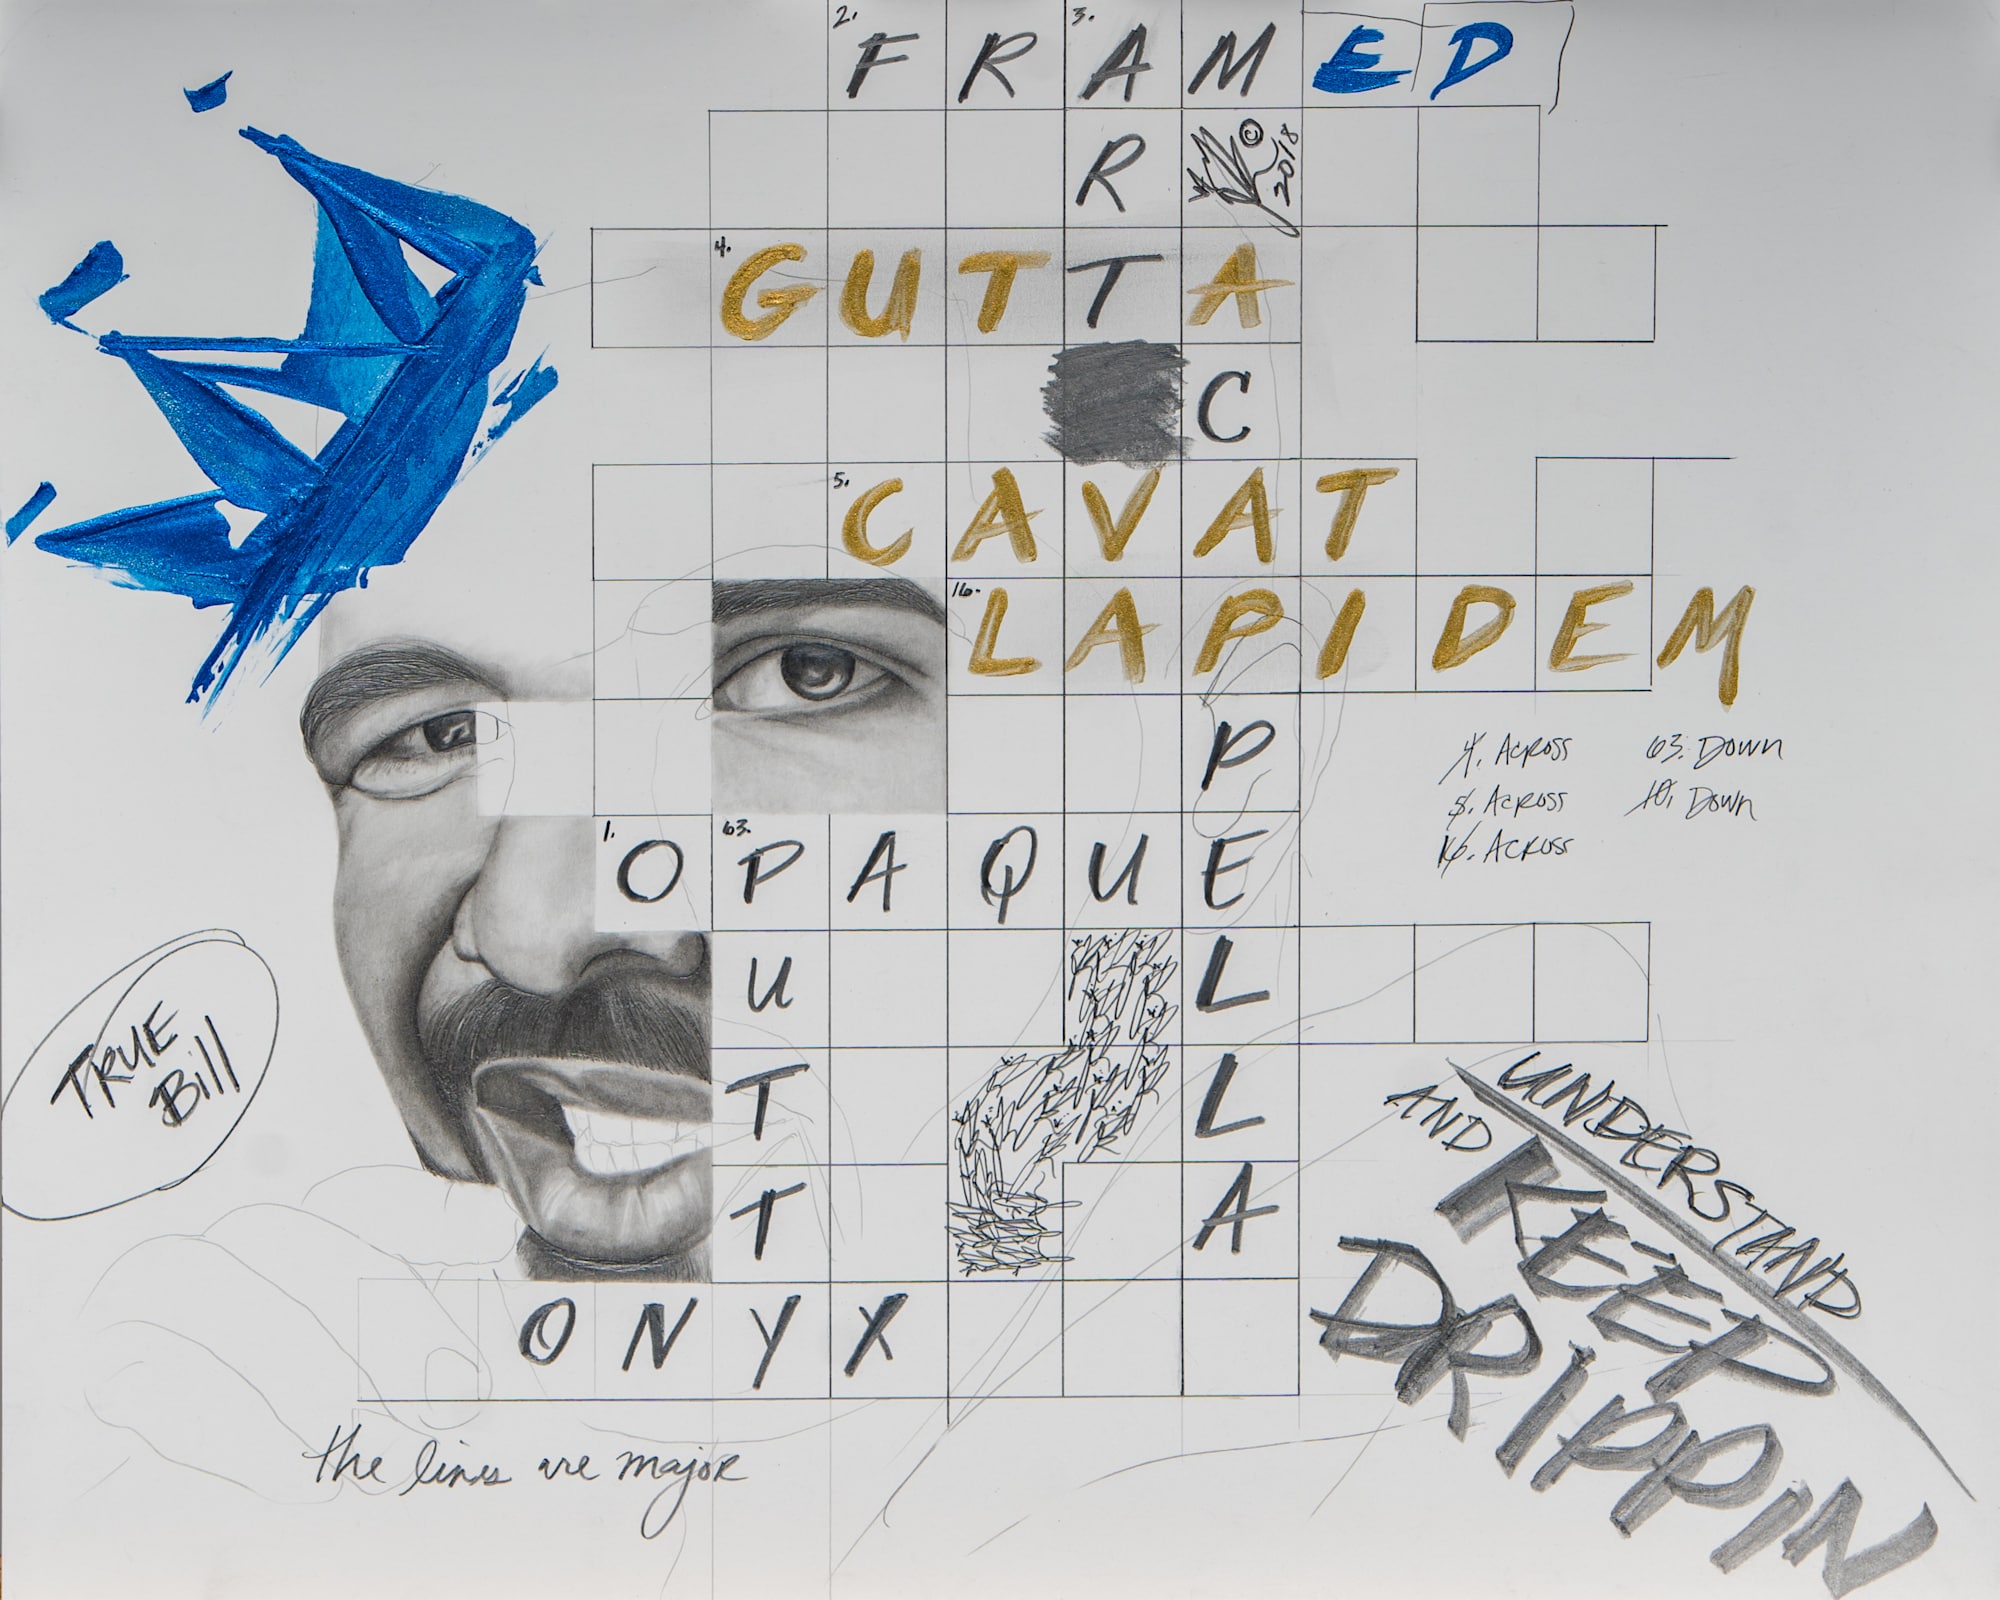 2. 3.
FRAMED
R © 2018
4.
GUTTA
C
5.
CAVAT
16.
LAPIDEM
P
4. Across 63. Down
5. Across 10. Down
16. Across
1. 63.
OPAQUE E
U L
T L
T A
ONYX
TRUE
Bill
UNDERSTAND
AND KEEP
DRIPPIN
the lines are major